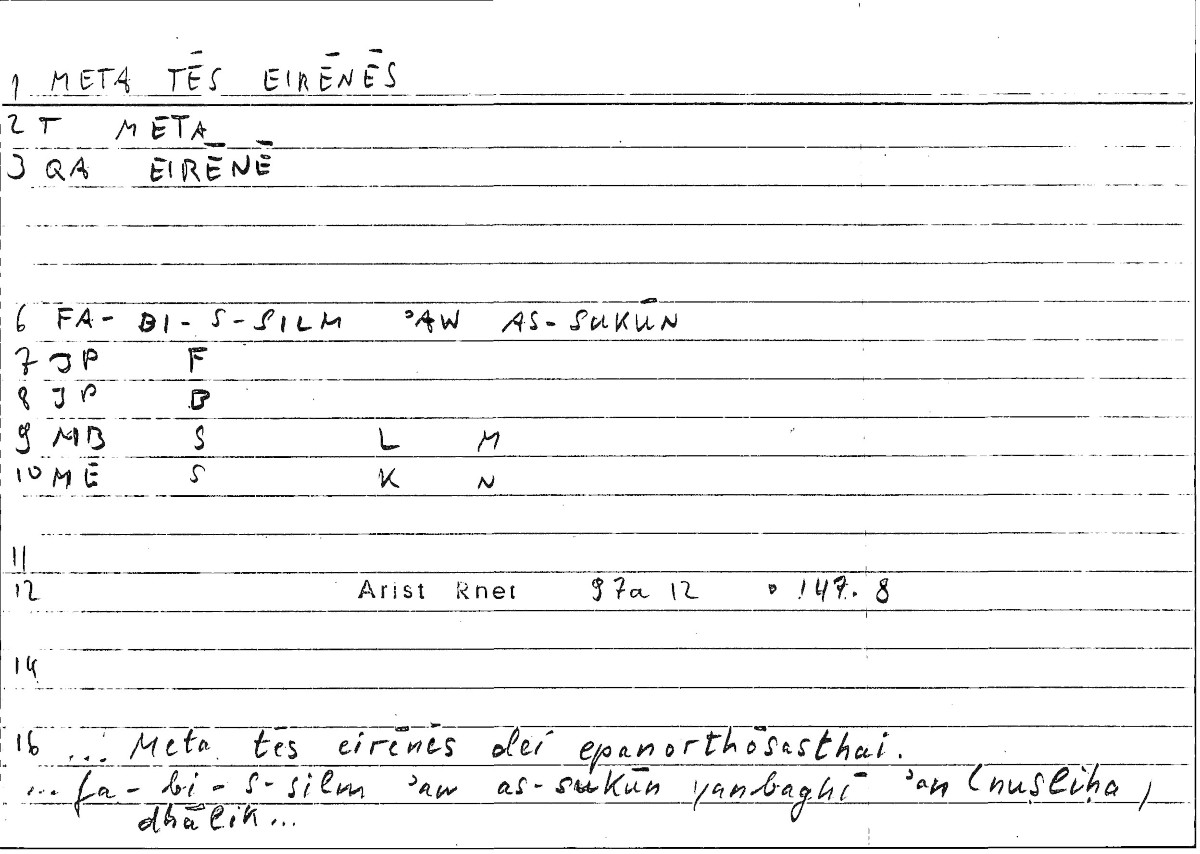 1 META TĒS EIRĒNĒS
2 T META
3 QA EIRĒNĒ
6 FA-BI-S-SILM ʾAW AS-SUKŪN
7 JP F
8 JP B
9 MB S L M
10 ME S K N
11
12 Arist Rhet 97a 12 147.8
14
16 ... Meta tēs eirēnēs deī epanorthōsasthai.
... fa-bi-s-silm ʾaw as-sukūn yanbaghī ʾan (nuṣliḥa)
dhālik...